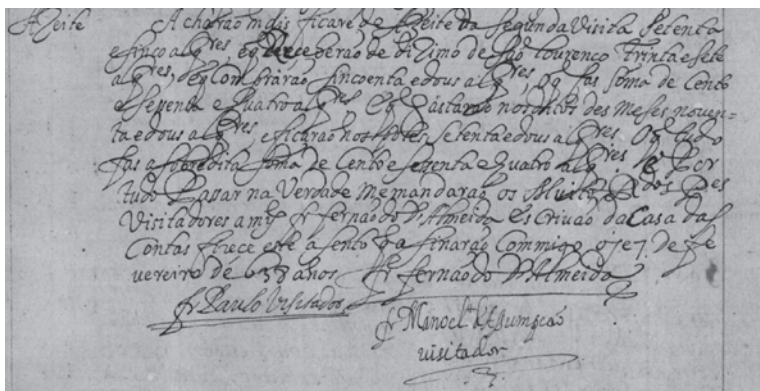 Azeite Acharão mais ficar de Azeite da segunda Visita setenta
e sinco alqres e q Receberão de dizimo de São Lourenço trinta e sete
alqres, e q Comprárão sincoenta e dous alqres, o q fas soma de Cento
e sesenta e quatro alqres E q gástarão nos ditos des meses noven=
ta e dous alqres, e ficarão nos potes setenta e dous alqres. O q tudo
fas a sobredita soma de Cento e sesenta e quatro alqres E Por
tudo Passar na Verdade Me mandarão os Muito Rdos Pes
Visitadores a my fr fernãodo d'Almeida Escrivão da Casa das
Contas fizece este asento q asinarão Commigo oje 7. de fe
vereiro de 638 anos fr fernãodo d'Almeida
fr Paulo Visitador
fr Manoel da Asumpção
visitador